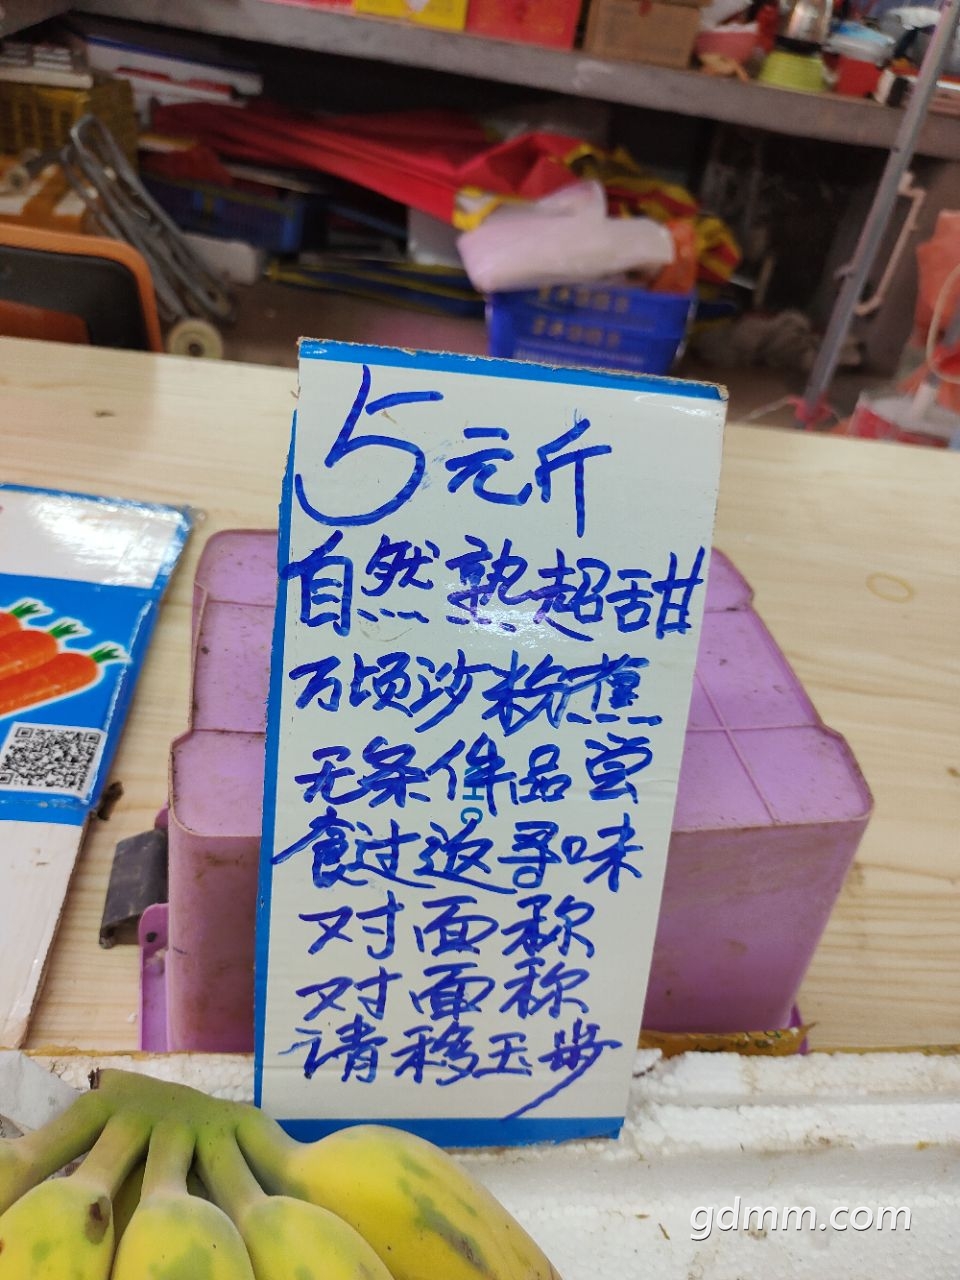 5元斤
自然熟超甜
万顷沙粉蕉
无条件品尝
食过返寻味
对面称
对面称
请移玉步
gdmm.com